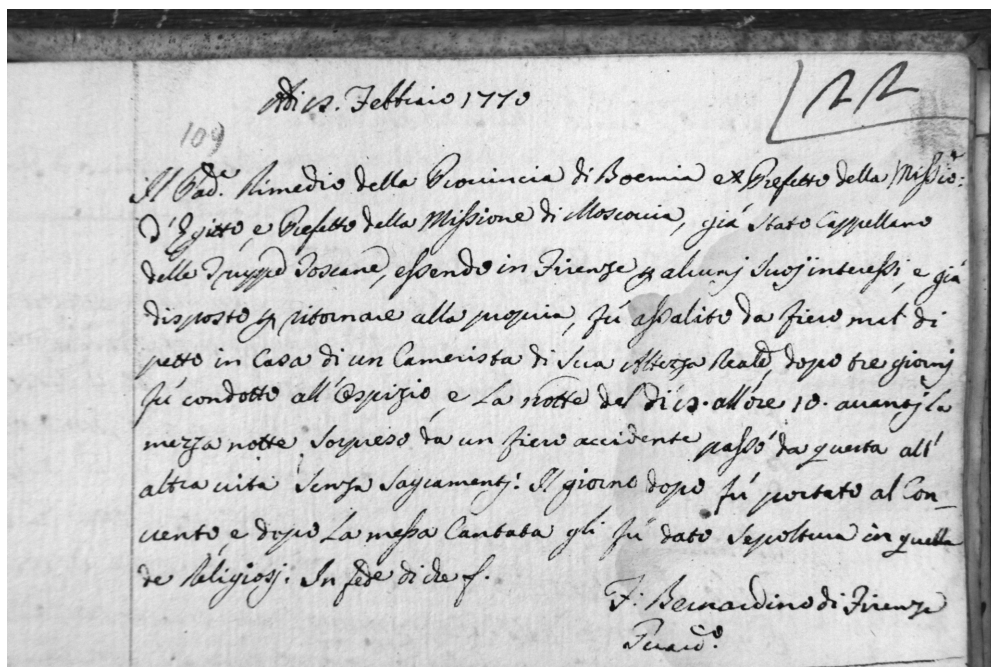 Adi 12. Febbraio 1770
22
109
Il Pad.e Rimedio della Provincia di Boemia ex Prefetto della Missio:
d'Egitto, e Prefetto della Missione di Moscovia, già stato Cappellano
delle Truppe Toscane, essendo in Firenze p alcunj suoj interessi, e già
disposto p ritornare alla propria, fù assalito da fiero mal di
petto in Casa di un Camerista di Sua Altezza Reale, dopo tre giornj
fù condotto all'Ospizio, e La notte del dì 12. all'ore 10. avantj la
mezza notte sorpreso da un fiero accidente passò da questa all'
altra vita senza Sagramentj: Il giorno dopo fù portato al Con-
vento, e dopo La messa Cantata gli fù dato Sepoltura in quella
de Religiosj: In fede di che f.
F. Bernardino di Firenze